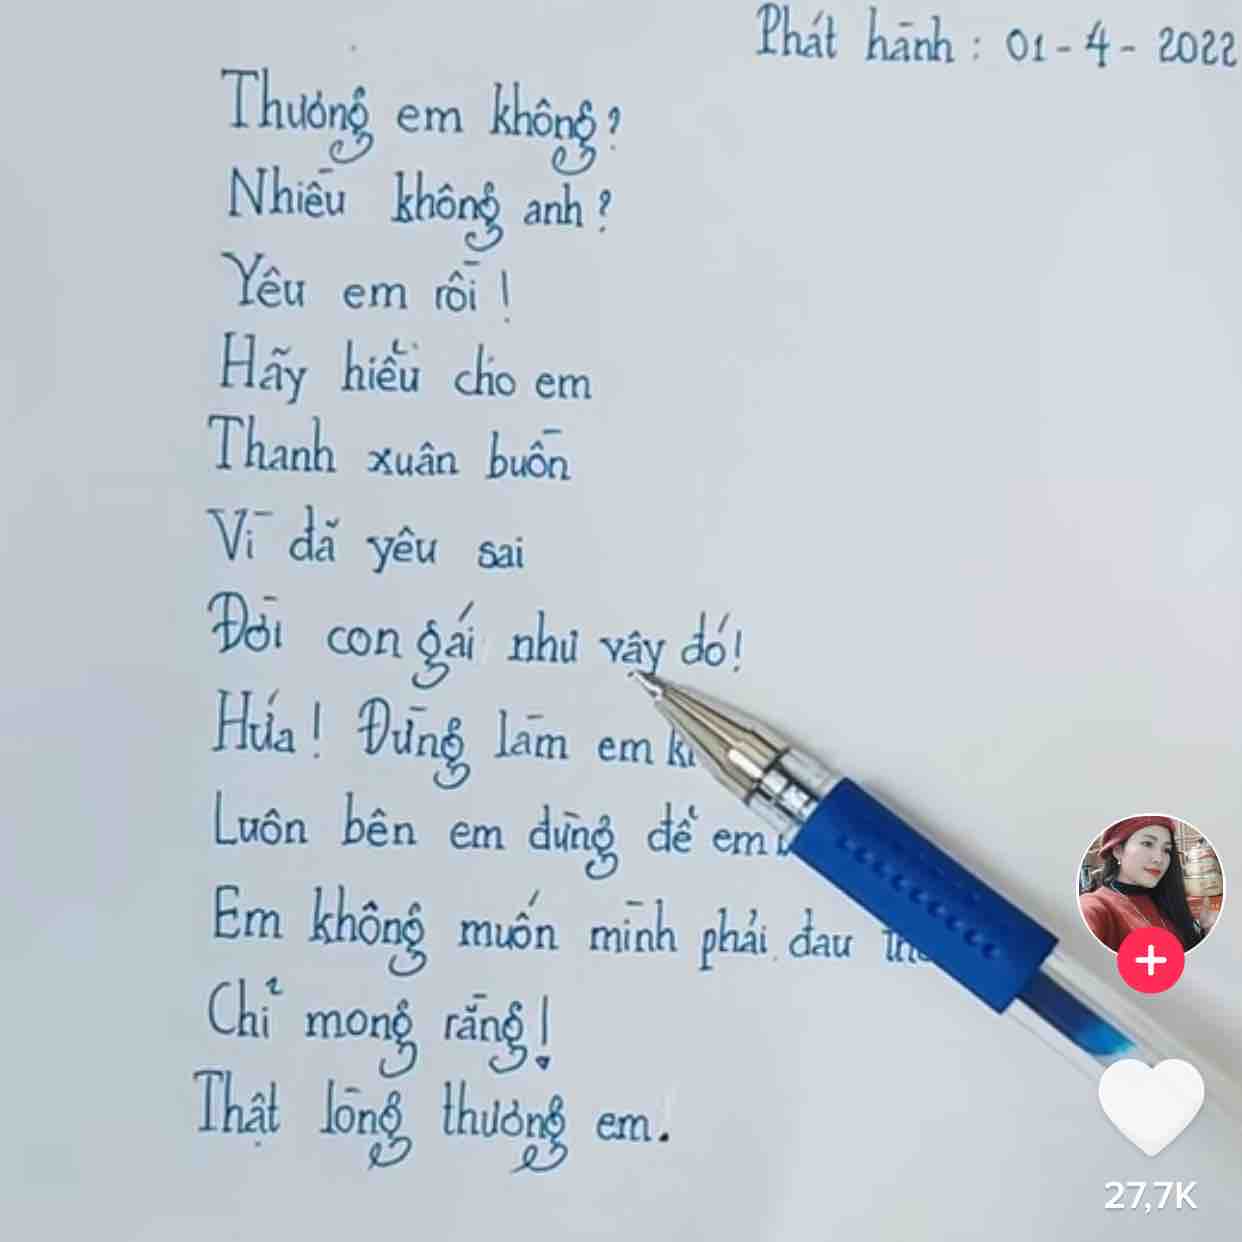 Phát hành : 01 - 4 - 2022
Thương em không?
Nhiều không anh?
Yêu em rồi!
Hãy hiểu cho em
Thanh xuân buồn
Vì đã yêu sai
Đời con gái như vậy đó!
Hứa! Đừng làm em
Luôn bên em đừng để em
Em không muốn mình phải đau
Chỉ mong rằng!
Thật lòng thương em.
27,7K